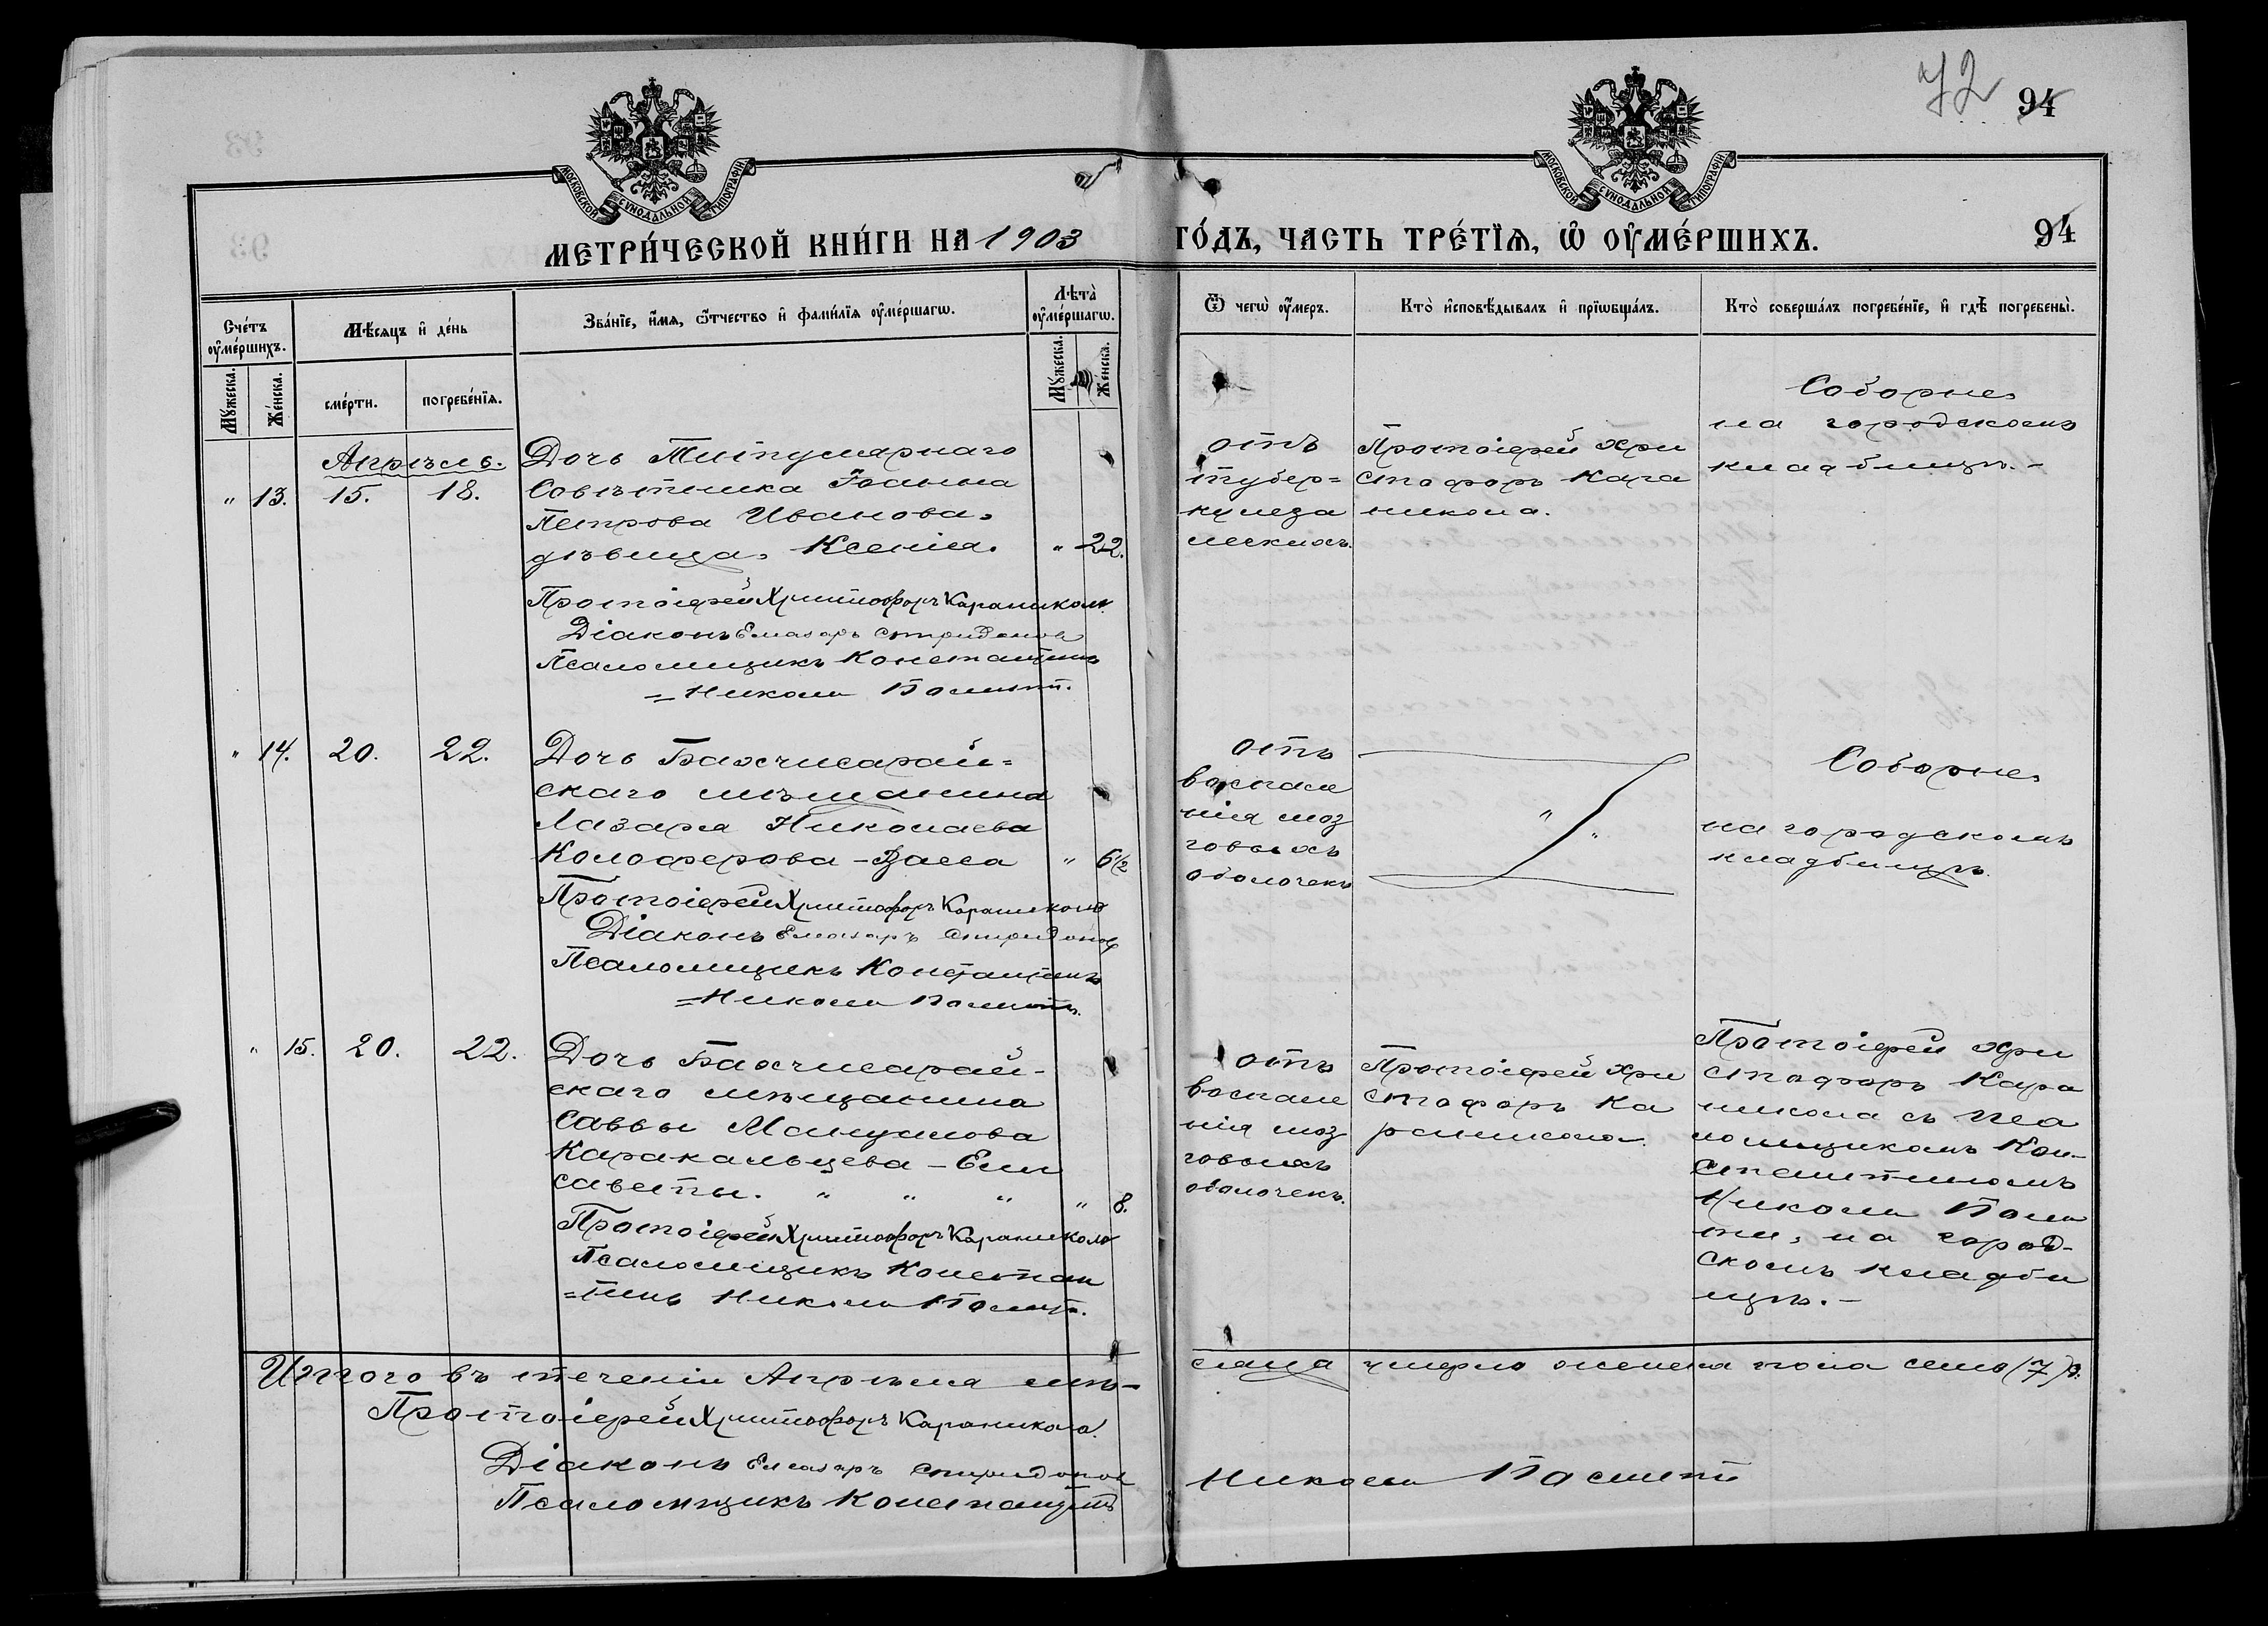 72
94
МОСКОВСКОЙ СУНОДАЛЬНОЙ ТИПОГРАФІИ.
МОСКОВСКОЙ СУНОДАЛЬНОЙ ТИПОГРАФІИ.
МЕТРИ́ЧЕСКОЙ КНИ́ГИ НА 1903 ГО́ДЪ, ЧАСТЬ ТРЕ́ТЇѦ, Ѡ҆ ОУ҆МЕ́РШИХЪ.
94
Сче́тъ оу҆ме́ршихъ.
Мѣ́сѧцъ и҆ де́нь
Зва́нїе, и҆́мѧ, ѻ҆́тчество и҆ фами́лїѧ оу҆ме́ршагѡ.
Лѣта̀ оу҆ме́ршагѡ.
Ѿ чегѡ̀ оу҆́меръ.
Кто̀ и҆сповѣ́дывалъ и҆ прїѡбща́лъ.
Кто̀ соверша́лъ погребе́нїе, и҆ гдѣ̀ погребены̀.
Мꙋ́жеска.
Же́нска.
сме́рти.
погребе́нїѧ.
Мꙋ́жеска.
Же́нска.
Апрѣль.
" 13. 15. 18.
Дочь Титулярнаго
Совѣтника Іоанна
Петрова Иванова,
дѣвица, Ксенія. " 22.
Протоіерей Христофоръ Караникола.
Діаконъ Елеазаръ Спиридонов
Псаломщикъ Константинъ
= Николи Помит.
отъ
тубер=
кулеза
легкихъ.
Протоіерей Хри
стофоръ Кара
никола.
Соборне
на городскомъ
кладбищѣ. -
" 14. 20. 22.
Дочь Бахчисарай=
скаго мѣщанина
Лазаря Николаева
Колоферова - Васса " 6 1/2
Протоіерей Христофоръ Караникола
Діаконъ Елеазаръ Спиридонов
Псаломщикъ Константинъ
= Николи
отъ
воспале
нія моз
говыхъ
оболочекъ
" "
Соборне
на городскомъ
кладбищѣ.
" 15. 20. 22.
Дочь Бахчисарай-
скаго мѣщанина
Саввы Мануилова
Каракальцева - Ели
саветы. " " " " 8.
Протоіерей Христофоръ Караникола
Псаломщикъ Констан
=тинъ Николи
отъ
воспале
нія моз
говыхъ
оболочекъ.
Протоіерей Хри
стофоръ Ка
раникола.
Протоіерей Хри
стофоръ Кара
никола съ пса
ломщикомъ Кон-
стантиномъ
Николи
на город-
скомъ кладби
щѣ. -
Итого въ теченіи Апрѣля мѣ-
сяца умерло женска пола семь (7)
Протоіерей Христофоръ Караникола.
Діаконъ Елеазаръ Спиридонов
Псаломщикъ Константинъ
Николи